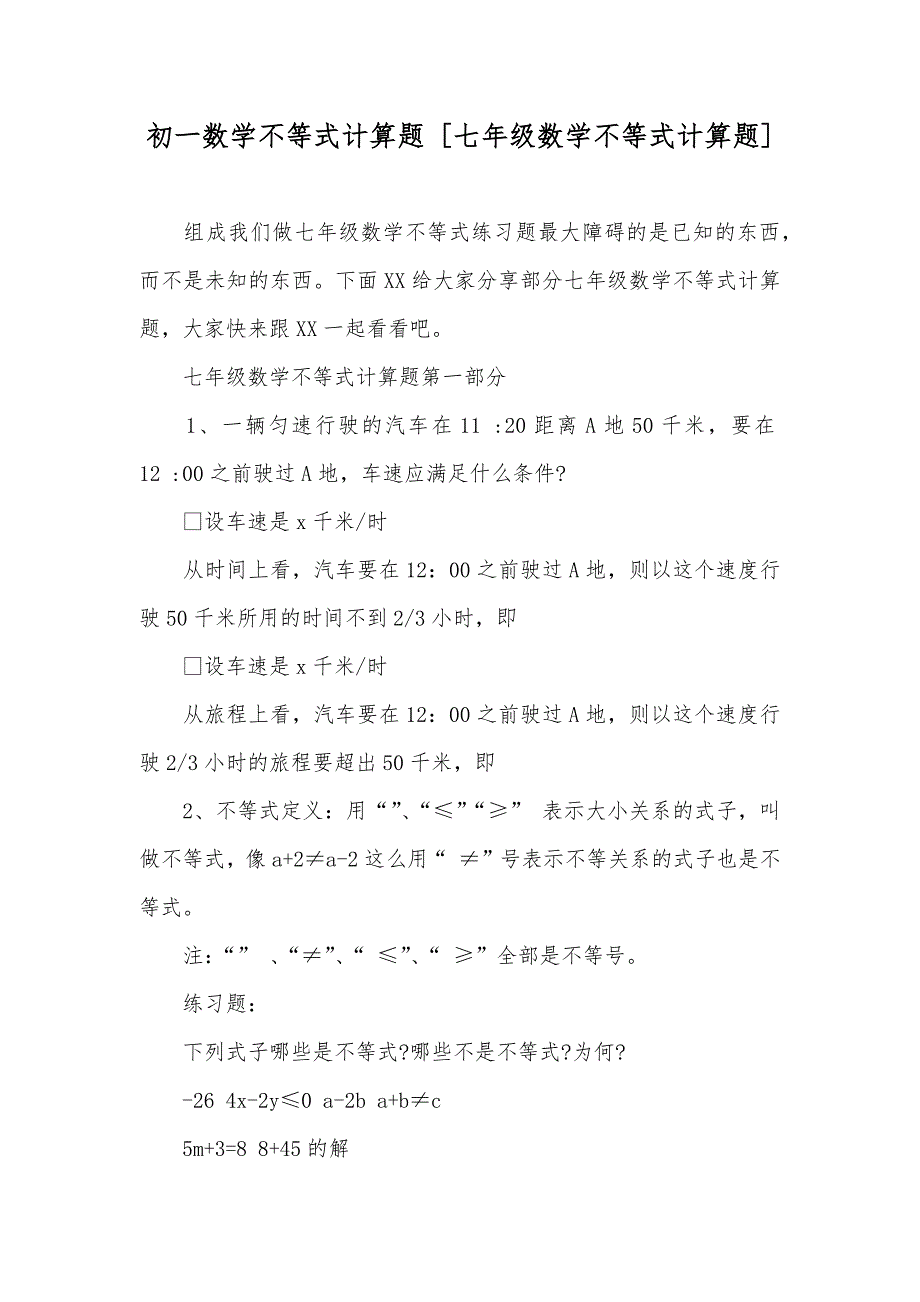 初一数学不等式计算题 [七年级数学不等式计算题]
组成我们做七年级数学不等式练习题最大障碍的是已知的东西，
而不是未知的东西。下面 XX 给大家分享部分七年级数学不等式计算
题，大家快来跟 XX 一起看看吧。
七年级数学不等式计算题第一部分
1、一辆匀速行驶的汽车在 11 :20 距离 A 地 50 千米，要在
12 :00 之前驶过 A 地，车速应满足什么条件?
□设车速是 x 千米/时
从时间上看，汽车要在 12：00 之前驶过 A 地，则以这个速度行
驶 50 千米所用的时间不到 2/3 小时，即
□设车速是 x 千米/时
从旅程上看，汽车要在 12：00 之前驶过 A 地，则以这个速度行
驶 2/3 小时的旅程要超出 50 千米，即
2、不等式定义：用“”、“≤”“≥” 表示大小关系的式子，叫
做不等式，像 a+2≠a-2 这么用“ ≠”号表示不等关系的式子也是不
等式。
注：“” 、“≠”、“ ≤”、“ ≥”全部是不等号。
练习题：
下列式子哪些是不等式?哪些不是不等式?为何?
-26 4x-2y≤0 a-2b a+b≠c
5m+3=8 8+45 的解